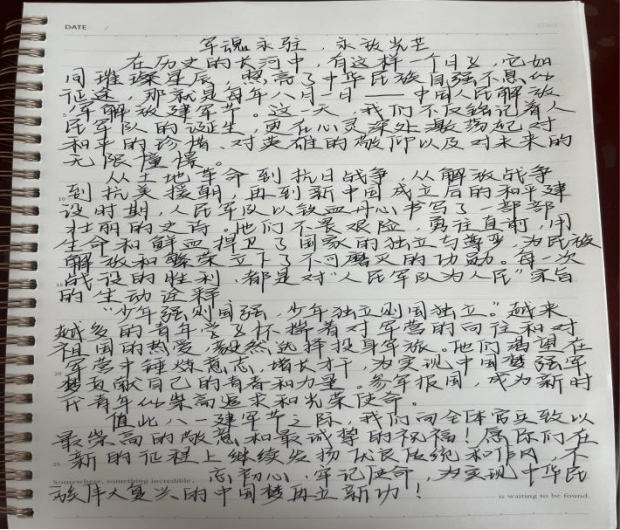 DATE
军魂永驻，永放光芒
在历史的长河中，有这样一个日子，它如
同璀璨星辰，照亮了中华民族自强不息的
征途，那就是每年八月一日——中国人民解放
军解放建军节。这一天，我们不仅铭记着人
民军队的诞生，更在心灵深处激荡起对
和平的珍惜、对英雄的敬仰以及对未来的
无限憧憬。
从土地革命到抗日战争，从解放战争
到抗美援朝，再到新中国成立后的和平建
设时期，人民军队以铁血丹心书写了一部部
壮丽的史诗。他们不畏艰险，勇往直前，用
生命和鲜血捍卫了国家的独立与尊严，为民族
解放和繁荣立下了不可磨灭的功勋。每一次
战役的胜利，都是对“人民军队为人民”宗旨
的生动诠释
“少年强则国强，少年独立则国独立。”越来
越多的青年学子怀揣着对军营的向往和对
祖国的热爱，毅然选择投身军旅。他们渴望在
军营中锤炼意志，增长才干，为实现中国梦强军
梦贡献自己的青春和力量。参军报国，成为新时
代青年的崇高追求和光荣使命。
值此八一建军节之际，我们向全体官兵致以
最崇高的敬意和最诚挚的祝福！愿你们在
新的征程上继续发扬优良传统和作风，不
Somewhere, something incredible
忘初心，牢记使命，为实现中华民
族伟大复兴的中国梦再立新功！
is waiting to be found.